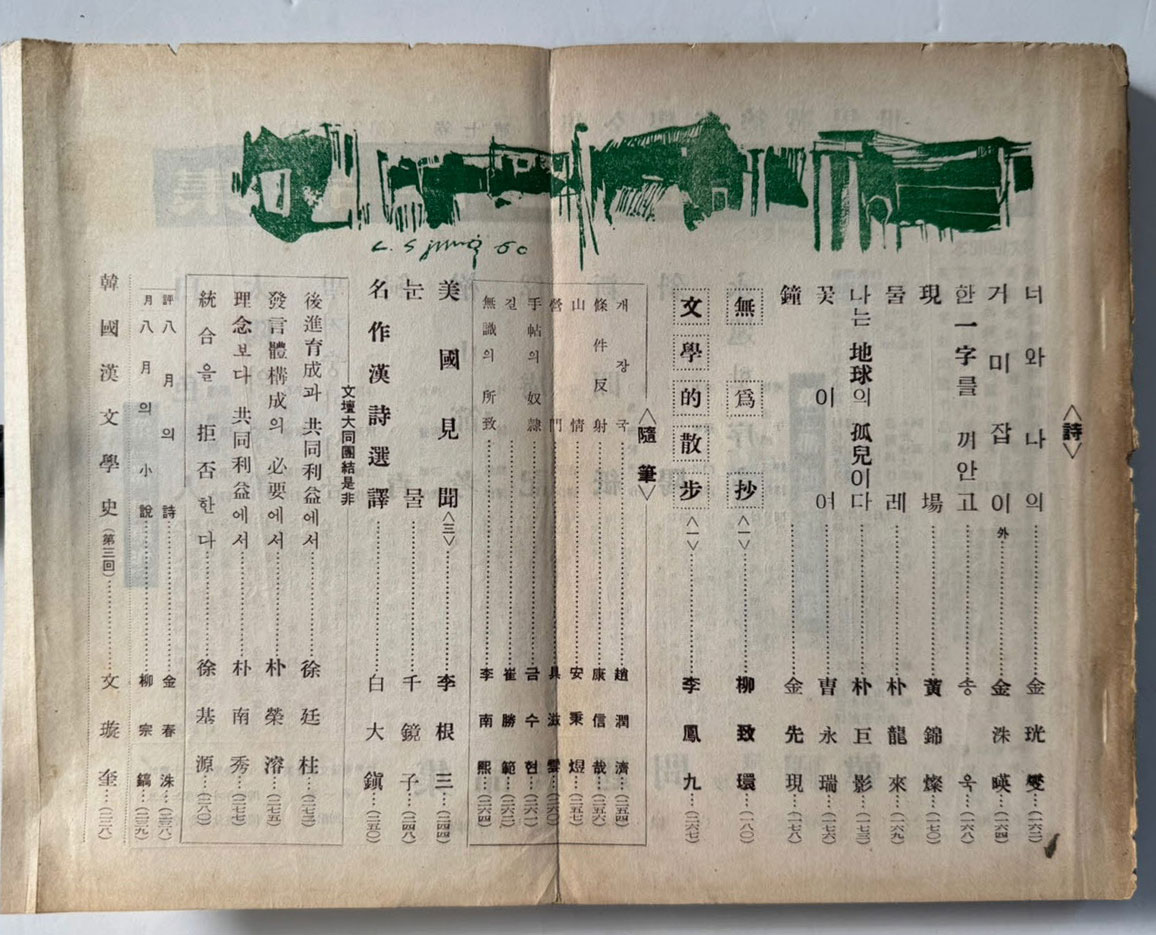 <詩>
너와나의……金珖燮…(一六二)
거미잡이外……金洙暎…(一六四)
한一字를 껴안고……송욱…(一六八)
現場……黃錦燦…(一七〇)
물레……朴龍來…(一六九)
나는 地球의 孤兒이다……朴巨影…(一七三)
꽃이여……曺永瑞…(一七六)
鐘……金先現…(一七八)
無爲抄<一>……柳致環…(一八〇)
文學的散步<一>……李鳳九…(二六七)
<隨筆>
개장국……趙潤濟…(二五四)
條件反射……康信哉…(二五六)
山情……安秉煜…(二五七)
營門……具滋雲…(二六〇)
手帖의 奴隷……금수현…(二六一)
길……崔勝範…(二六二)
無識의 所致……李南熙…(二六四)
美國見聞<三>……李根三…(二四四)
눈물……千鏡子…(二四八)
名作漢詩選譯……白大鎭…(二五〇)
文壇大同團結是非
後進育成과 共同利益에서……徐廷柱…(二七三)
發言體構成의 必要에서……朴榮濬…(二七五)
理念보다 共同利益에서……朴南秀…(二七七)
統合을 拒否한다……徐基源…(二八〇)
評 八月의 詩……金春洙…
月 八月의 小說……柳宗鎬…(二三九)
韓國漢文學史(第三回)……文璇奎…(二二八)
C. S jung 60